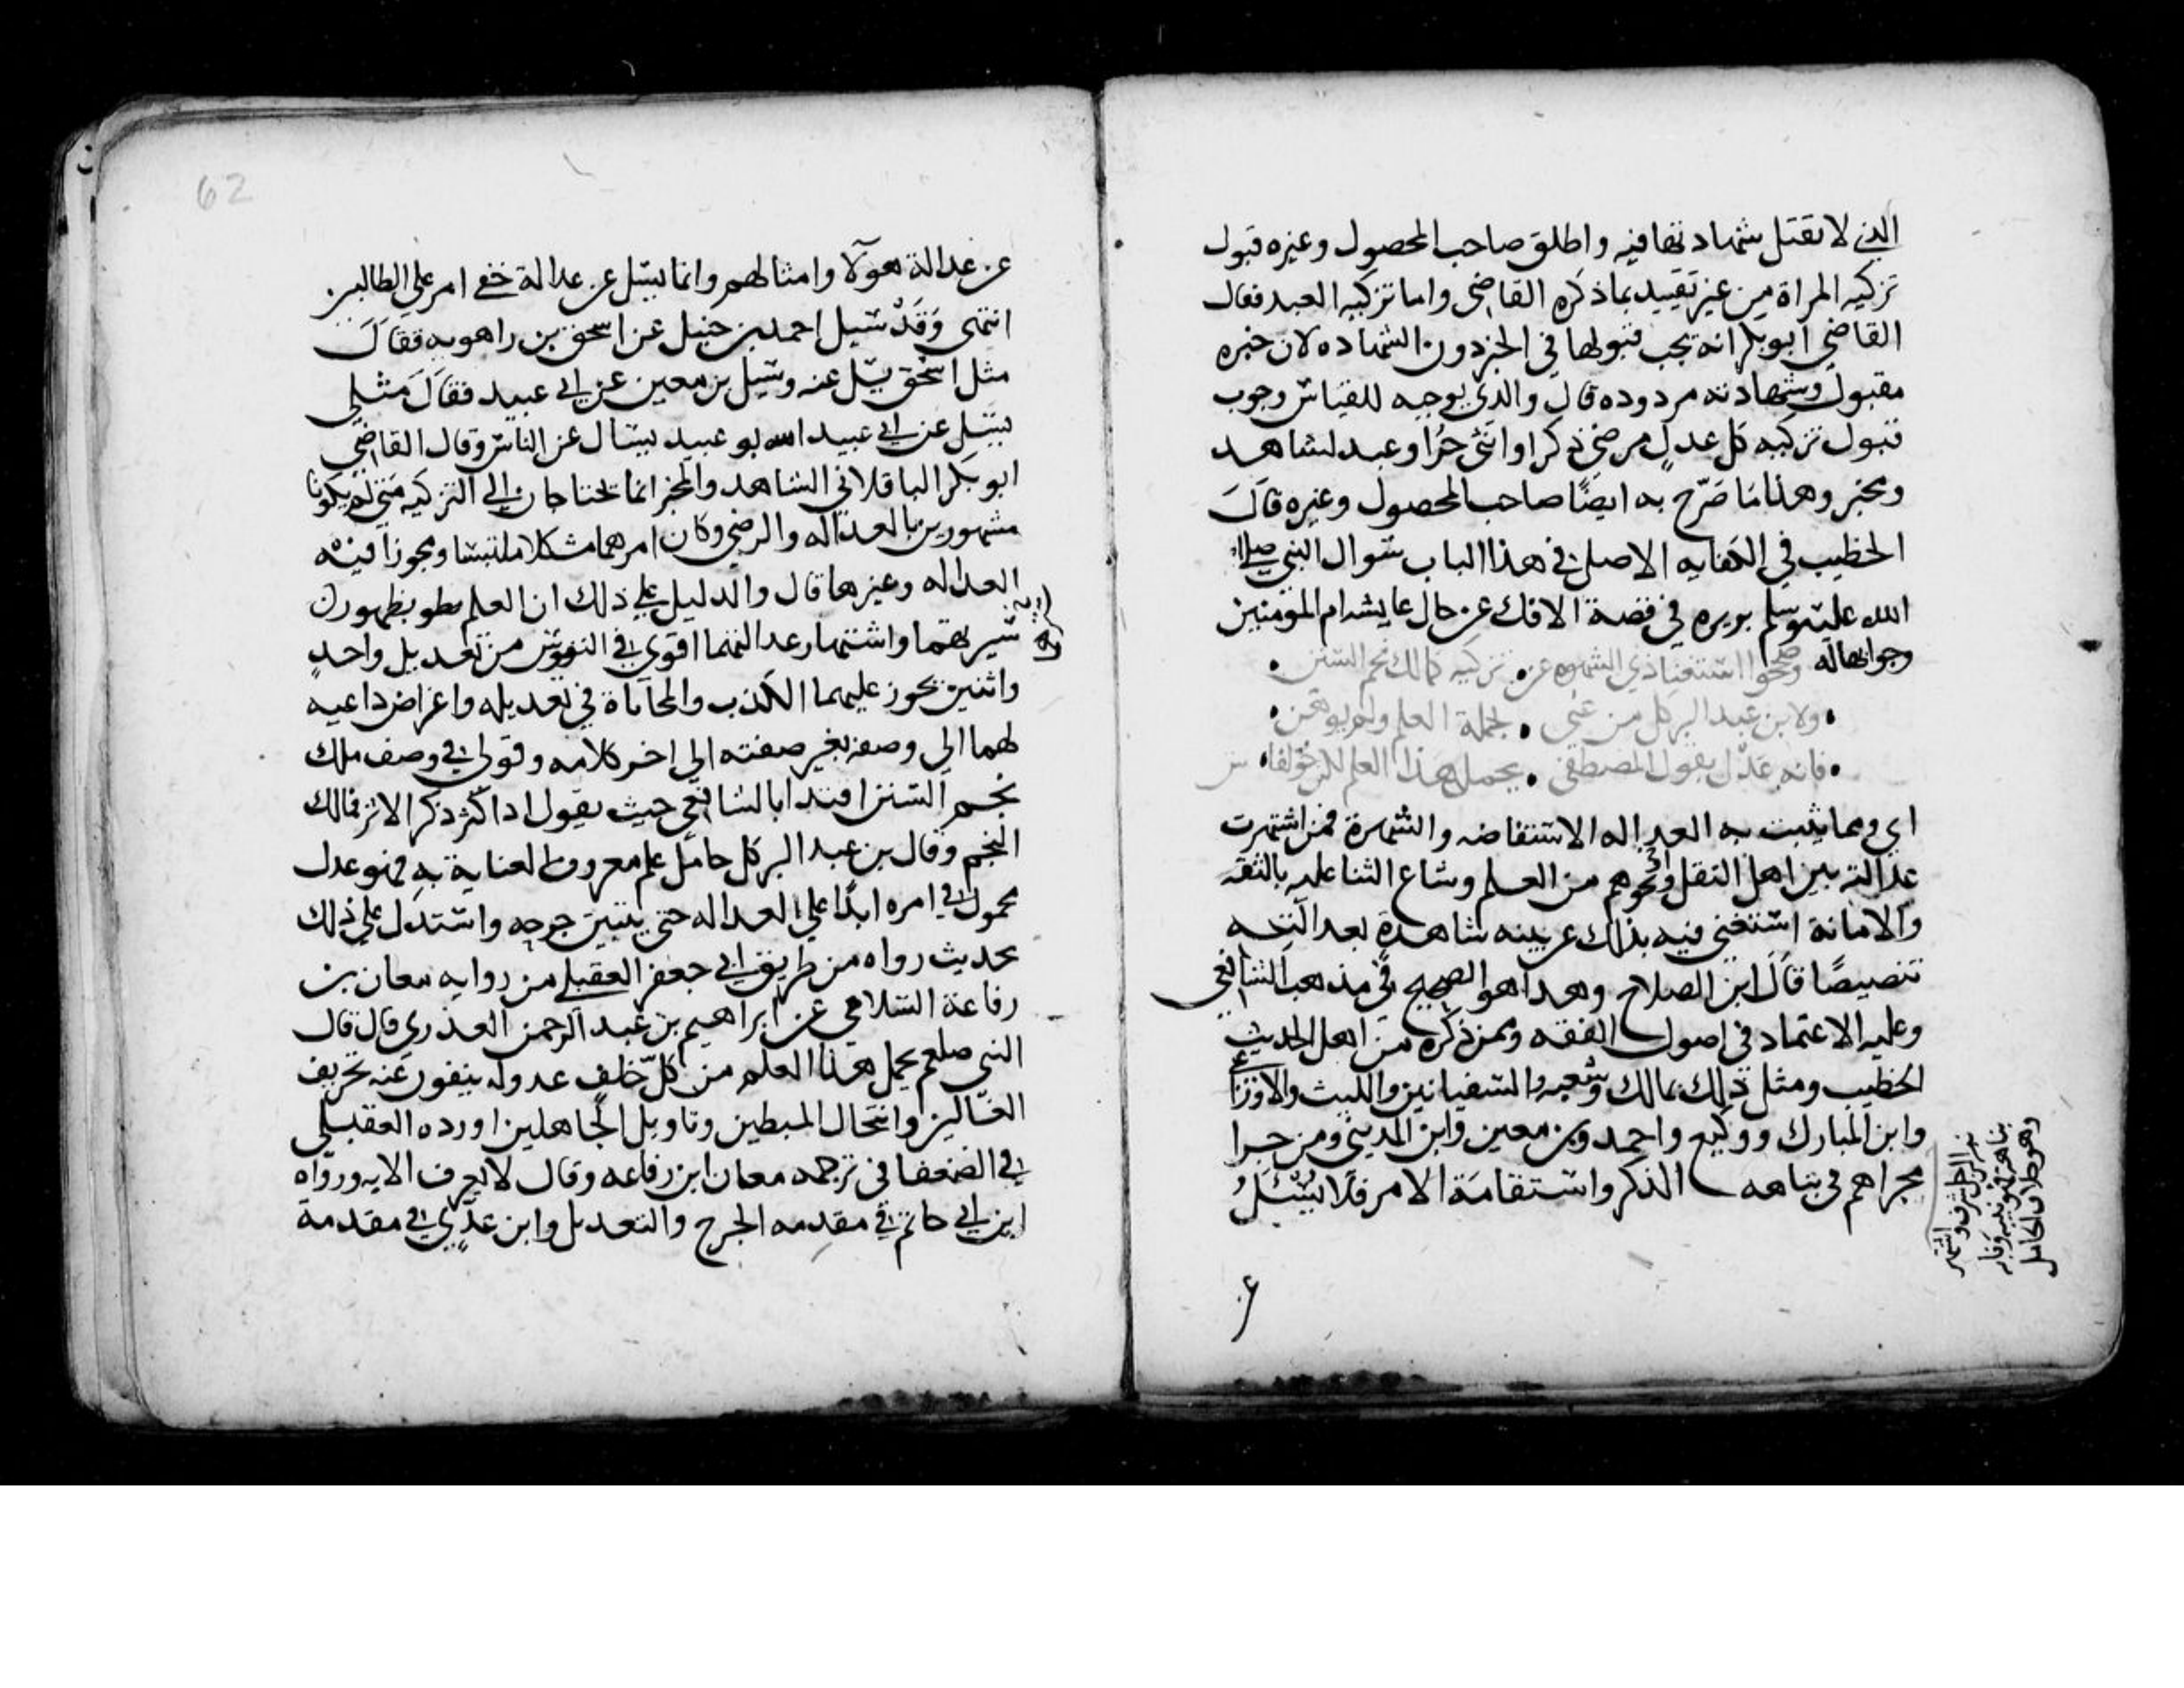 التي لا تقتل شهادتها فيه واطلق صاحب المحصول وغيره قبول
تزكيه المراة من غير تقييد بما ذكره القاضي واما تزكيه العبد فقال
القاضي ابو بكر انه يجب قبولها في الخبر دون الشهاده لان خبره
مقبول وشهادته مردوده قال والذي يوجبه للقياس وجوب
قبول تزكيه كل عدل مرضي ذكرا او انثى حرا او عبد لشاهد
ومخبر وهذا ما صرّح به ايضًا صاحب المحصول وغيره قال
الخطيب في الكفايه الاصل في هذا الباب سوال النبي صلى
الله عليه وسلم بريره في قصة الافك عن حال عايشه ام المومنين
وجوابها له وصححوا استغنا ذي الشهره عن تزكيه كمالك نجم السنن
ولابن عبد البر كل من عنى بحمله العلم ولم يوهن
فانه عدل بقول المصطفى يحمل هذا العلم لكن خولفا
اي ومما يثبت به العداله الاستفاضه والشهرة فمن اشتهرت
عدالته بين اهل النقل او نحوهم من العلم وشاع الثنا عليه بالثقه
والامانة استغني فيه بذلك عن بينه شاهدة بعدالته
تنصيصًا قال ابن الصلاح وهذا هو الصحيح في مذهب الشافعي
وعليه الاعتماد في اصول الفقه وممن ذكره من اهل الحديث
الخطيب ومثل ذلك بمالك وشعبه والسفيانين والليث والاوزاعي
وابن المبارك ووكيع واحمد وبن معين وابن المديني ومن جرا
مجراهم في نباهه الذكر واستقامة الامر فلا يسئل
عن عدالة هولا وامثالهم وانما يسئل عن عدالة خفي امر علي الطالبين
انتهى وقد سيل احمد بن حنبل عن اسحق بن راهويه فقال
مثل اسحق يسل عنه وسيل بن معين عن ابي عبيد فقال مثلي
يسئل عن ابي عبيد الله بو عبيد يسال عن الناس وقال القاضي
ابو بكر الباقلاني الشاهد والمخبر انما يحتاجان الي التزكيه متى لم يكونا
مشهورين بالعداله والرضي وكان امرهما مشكلا ملتبسا ومجوزا فيه
العداله وغيرها قال والدليل علي ذلك ان العلم بظهور
سيرتهما واشتهار عدالتهما اقوي في النفوس من تعديل واحد
واثنين يجوز عليهما الكذب والمحاباة في تعديله واغراض داعيه
لهما الي وصفه بغير صفته الي اخر كلامه وقولي في وصف ملك
نجم السنن اقتدا بالشافعي حيث يقول اذا كثر ذكر الاثر فمالك
النجم وقال بن عبد البر كل حامل علم معروف العناية به فهو عدل
محمول في امره ابدًا علي العداله حتي يتبين جرحه واستدل علي ذلك
بحديث رواه من طريق ابي جعفر العقيلي من روايه معان بن
رفاعة السلامي عن ابراهيم بن عبد الرحمن العذري قال قال
النبي صلعم يحمل هذا العلم من كل خلف عدوله ينفون عنه تحريف
الغالين وانتحال المبطلين وتاويل الجاهلين اورده العقيلي
في الضعفا في ترجمه معان ابن رفاعه وقال لا يعرف الا به ورواه
ابن ابي حاتم في مقدمه الجرح والتعديل وابن عدي في مقدمة
62